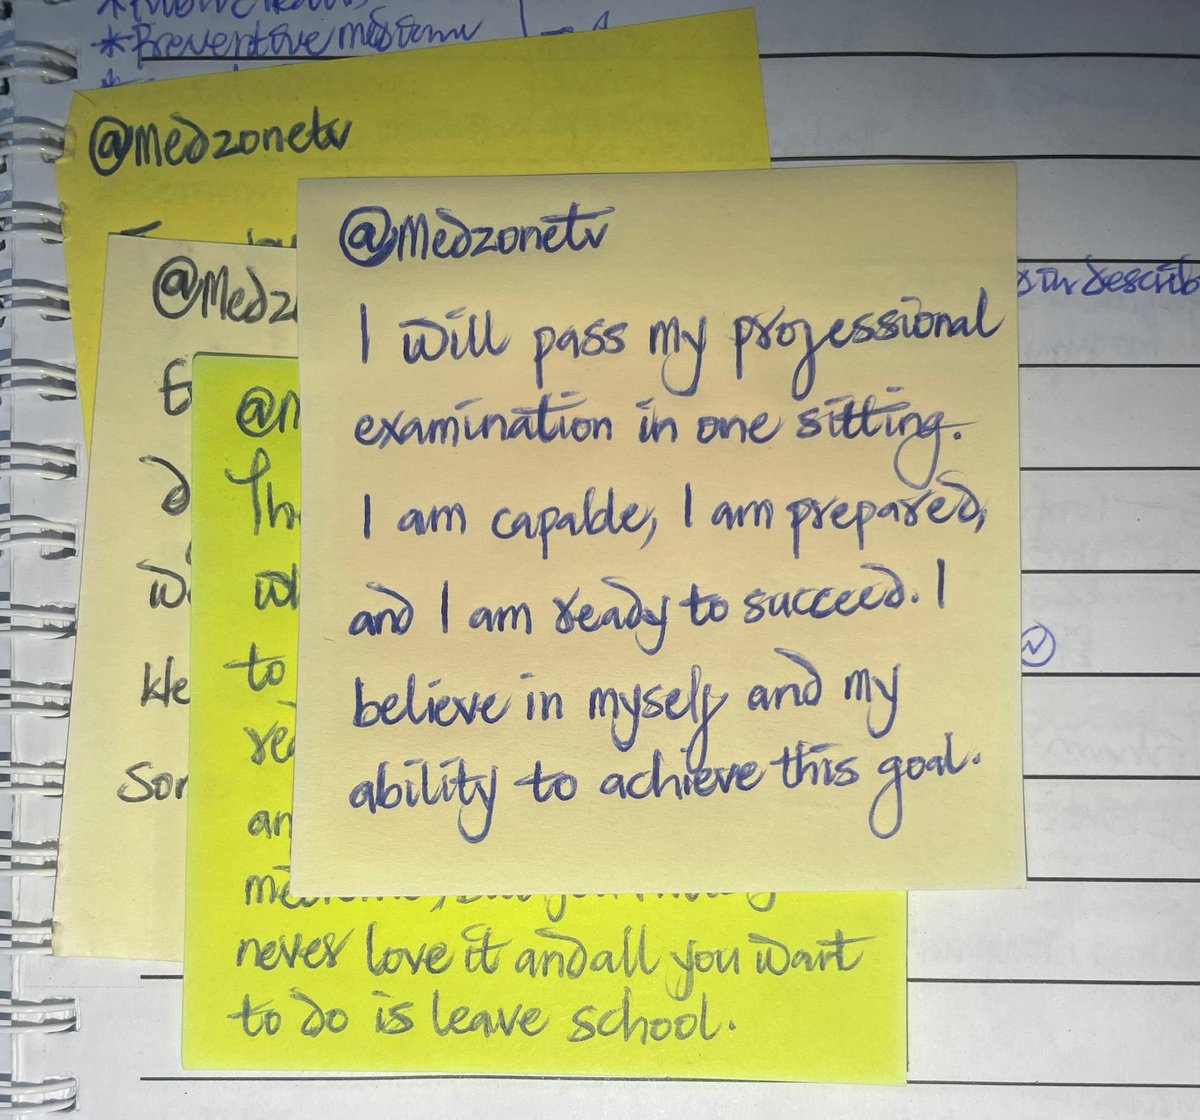 *Preventive
@Medzonetv
@Medz
@M
@Medzonetv
I will pass my professional
examination in one sitting.
I am capable, I am prepared,
and I am ready to succeed. I
believe in myself and my
ability to achieve this goal.
describ
Th
wh
to
an
never love it and all you want
to do is leave school.
Sor